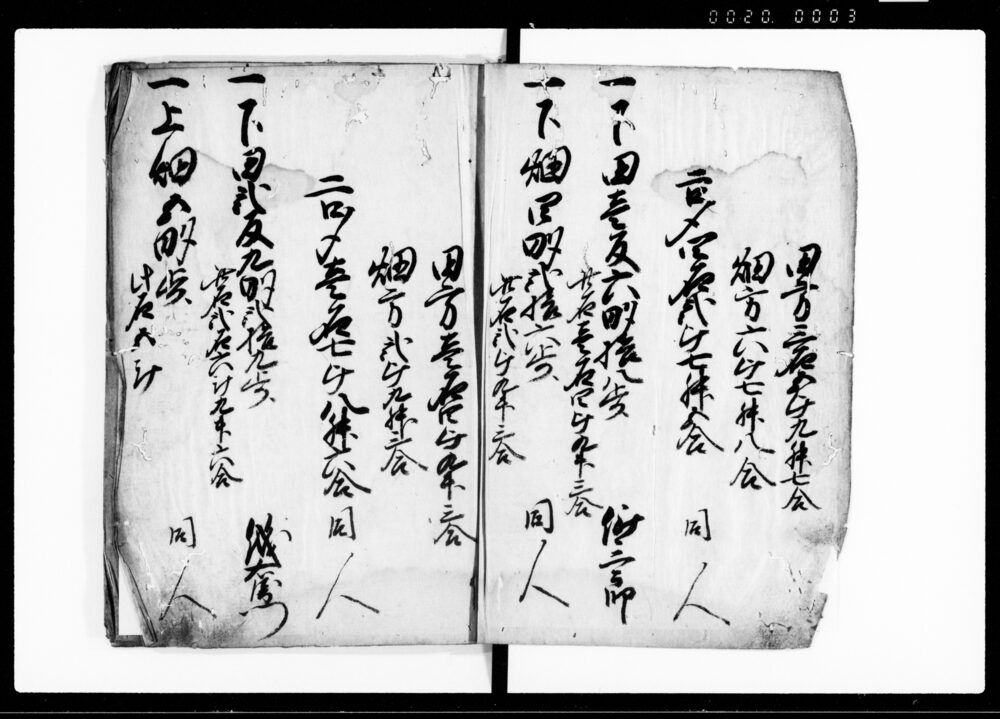 0020. 0003
田方三石五斗九升七合
畑方六斗七升八合
二口〆四石弐斗七升五合 同人
一下田壱反六畝拾八歩
此石壱石四斗九升三合
一下畑四畝弐拾六歩 同人
此石弐斗九升三合
田方壱石四斗九升三合
畑方弐斗九升三合
二口〆壱石七斗八升六合 同人
一下田弐反九畝弐拾九歩
此石弐石六斗九升六合
一上畑五畝歩 同人
此石五斗